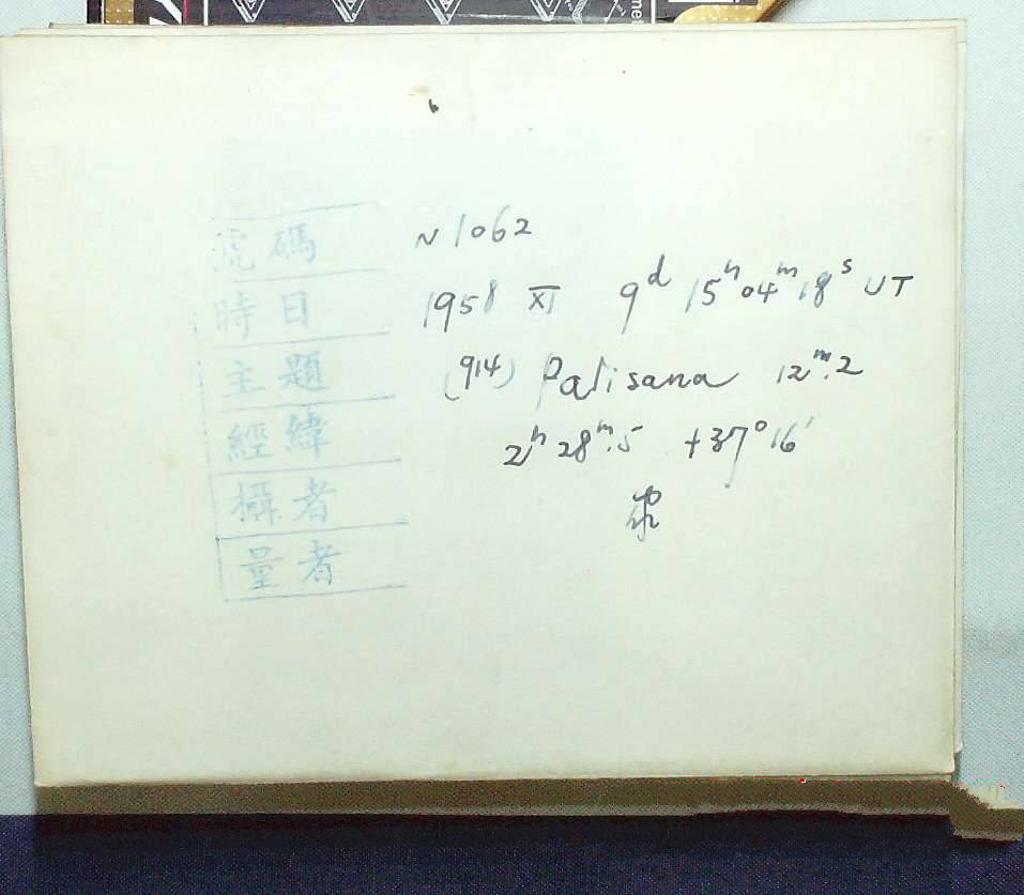 號碼 N 1062
時日 1958 XI 9ᵈ 15ʰ 04ᵐ 18ˢ UT
主題 (914) Palisana 12ᵐ.2
經緯 2ʰ 28ᵐ.5 +37° 16′
攝者
量者